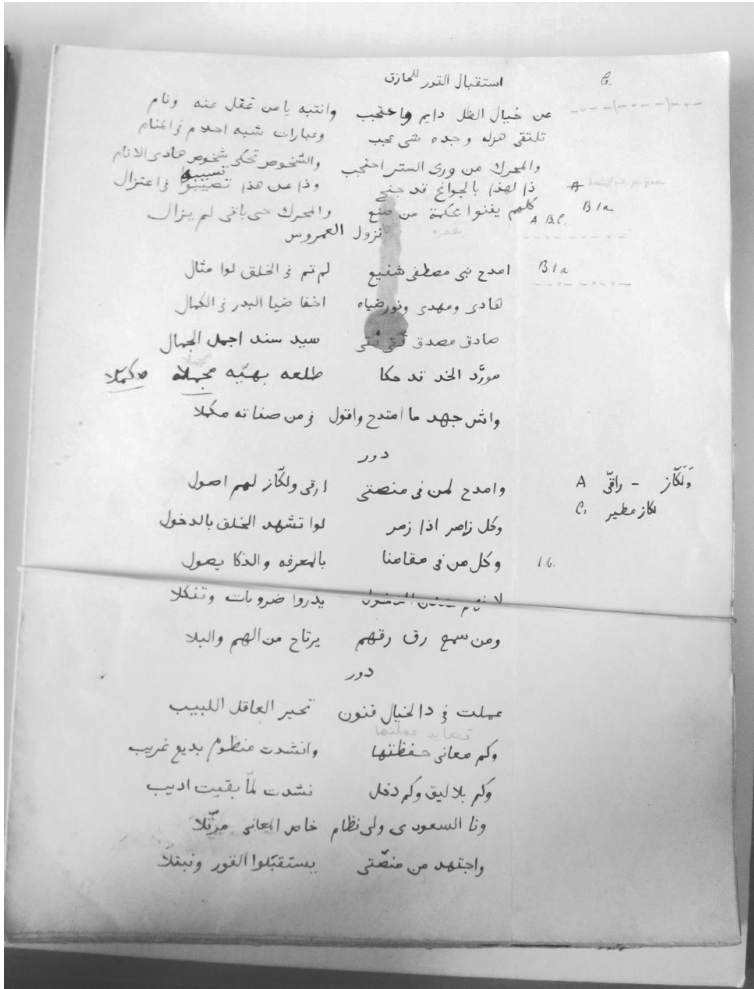 استقبال التور للحازق B.
عن خيال الظل دايم واحتجب وانتبه يا من غفل عنه ونام
تلتقى هزله وجده شى عجب وعبارات شبه احلام فى المنام
والمحرك من ورى الستر احتجب والشخوص تحكى شخوص هادى الانام
ذا لهذا بالجوانح قد جنى وذا عن هذا فى اعتزال A
كلهم يفنوا بحكمة من صنع والمحرك حى باقى لم يزال B 1a
A B.C.
نزول العمروس
امدح نبى مصطفى شفيع لم تم فى الخلق لوا مثال B 1a
هادى ومهدى ونور ضياه اخفا ضيا البدر فى الكمال
صادق مصدق تقى نقى سيد سند اجمل الجمال
مورّد الخد قد حكا طلعه بهيّه مجملا مكملا
واش جهد ما امتدح واقول فى من صفاته مكملا
دور
وامدح لمن فى منصتى ارقى ولكّاز لهم اصول A ولكّاز - راقى
وكل زامر اذا زمر لوا تشهد الخلق بالدخول C. لكاز مطير
وكل من فى مقامنا بالمعرفه والذكا يصول
يدروا ضروبات وتنكلا
ومن سمع رق رقهم يرتاح من الهم والبلا
دور
عملت فى دا الخيال فنون تحير العاقل اللبيب
وكم معانى حفظتها وانشدت منظوم بديع غريب
وكم بلاليق وكم دخل نشدت لمّا بقيت اديب
ونا السعودى ولى نظام خاص المعانى مرتّلا
واجتهد من منصّتى يستقبلوا التور ونبقلا